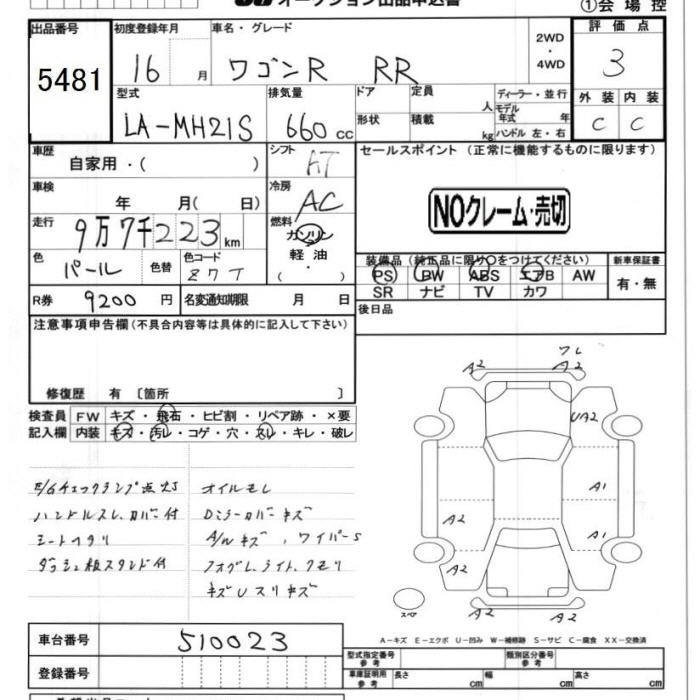 オークション出品申込書
①会場控
出品番号 初度登録年月 車名・グレード 2WD ・ 4WD 評価点
5481 16 月 ワゴンR RR 3
型式 排気量 ドア 定員 人 ディーラー・並行 外装 内装
モデル年式 年
LA-MH21S 660 cc 形状 積載 kg ハンドル 左・右 C C
車歴 自家用・( ) シフト AT セールスポイント (正常に機能するものに限ります)
車検 年 月( 日) 冷房 AC
NOクレーム・売切
走行 9万7千223km 燃料 ガソリン 軽油 ・ ( )
色 パール 色替 色コード Z7T
装備品 (純正品に限り○をつけてください) 新車保証書
PS PW ABS エアB AW 有・無
SR ナビ TV カワ
R券 9200円 名変通知期限 月 日
後日品
注意事項申告欄(不具合内容等は具体的に記入して下さい)
修復歴 有 〔箇所 〕
検査員 FW キズ・飛石・ヒビ割・リペア跡・×要
記入欄 内装 キズ・汚レ・コゲ・穴・スレ・キレ・破レ
E/Gチェックランプ点灯 オイルモレ
ハンドルスレ、カバー付 Dミラーカバーキズ
シートヘタリ A/Wキズ、ワイパーS
ダッシュ板スタンド付 フォグL、ライト、クモリ
キズUスリキズ
ワレ
A2 A2
UA2
A1
A2 A1
A2 A2
A2 A2
スペア
A-キズ E-エクボ U-凹み W-補修跡 S-サビ C-腐食 XX-交換済
車台番号 510023
型式指定番号 参考 類別区分番号 参考
登録番号 車庫証明用 参考 長さ cm 幅 cm 高さ cm